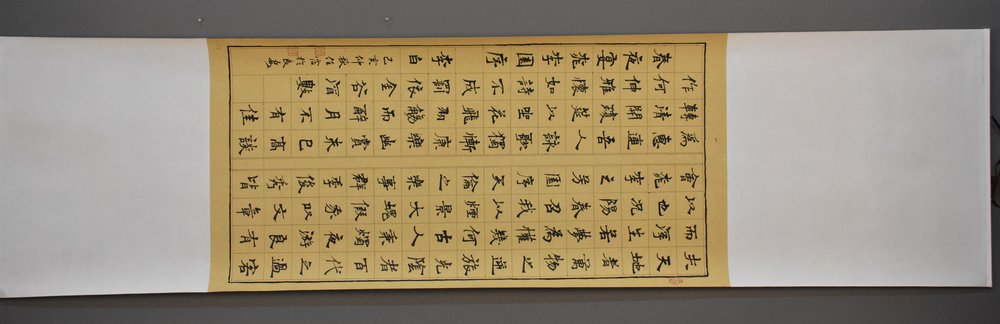 夫天地者萬物之逆旅光陰者百代之過客
而浮生若夢為歡幾何古人秉燭夜游良有
以也況陽春召我以煙景大塊假我以文章
會桃李之芳園序天倫之樂事群季俊秀皆
為惠連吾人詠歌獨慚康樂幽賞未已高談
轉清開瓊筵以坐花飛羽觴而醉月不有佳
作何伸雅懷如詩不成罰依金谷酒數
春夜宴桃李園序 李白 己亥仲秋 於長安